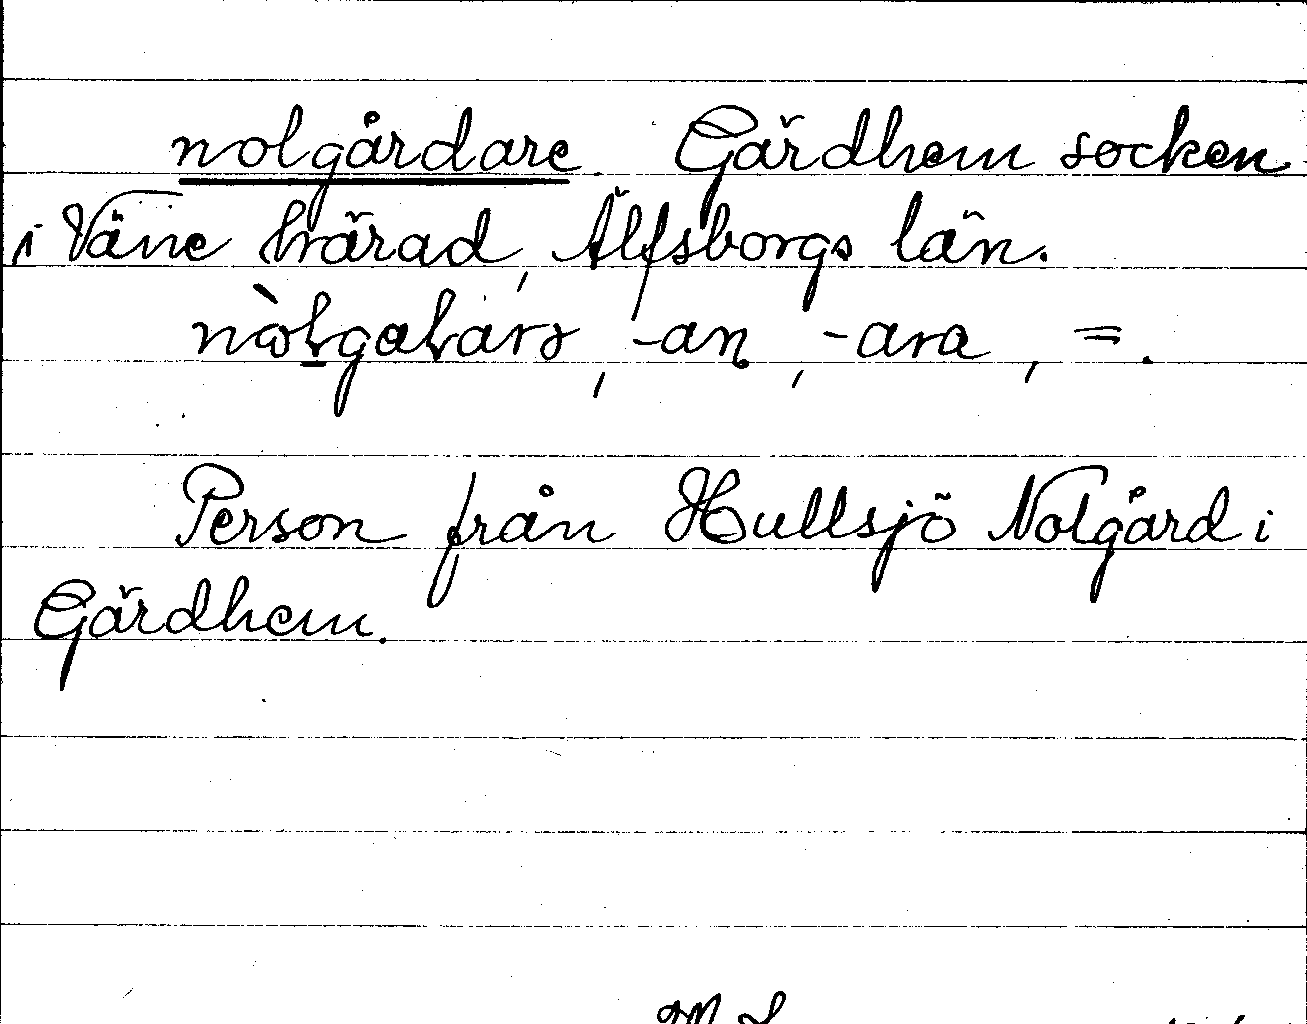 nolgårdare. Gärdhem socken
i Väne härad, Älfsborgs län.
-an, -ara, =.
Person från Hullsjö Nolgård i
Gärdhem.